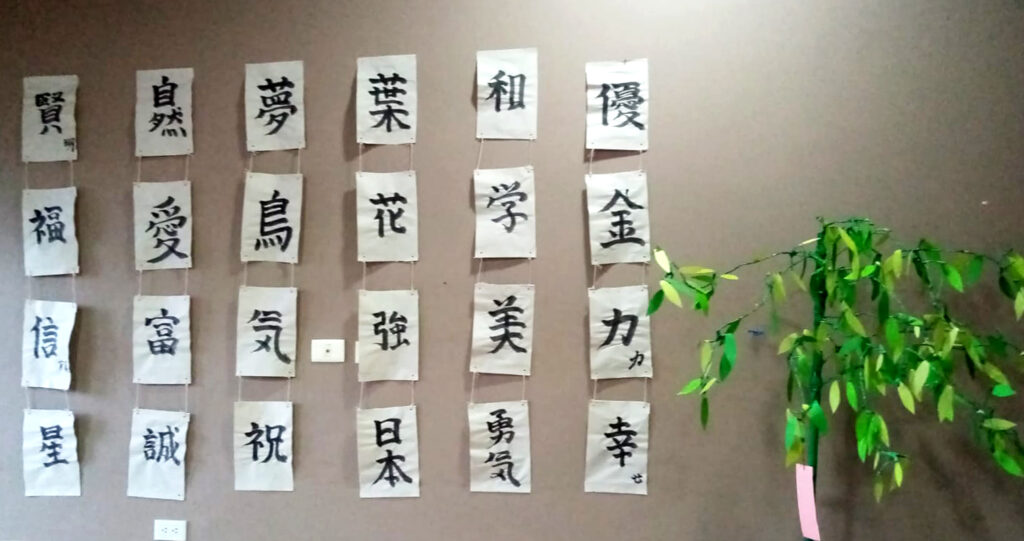 優
金
力
力
幸せ
和
学
美
勇気
葉
花
強
日本
夢
鳥
気
祝
自然
愛
富
誠
賢
福
信
星